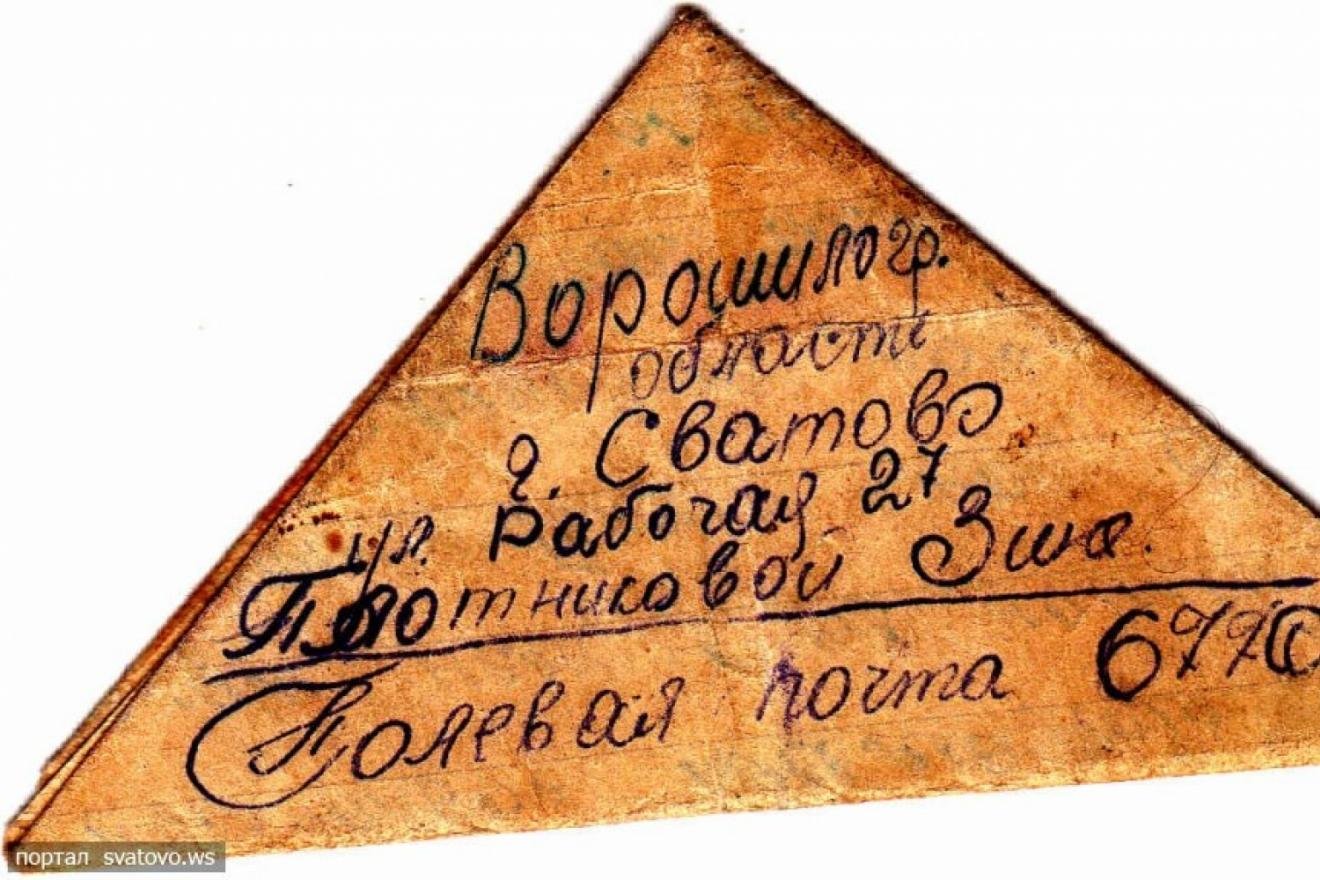 Ворошилогр.
область
г. Сватово
ул. Рабочая 27
Плотниковой Зине.
Полевая почта
портал svatovo.ws